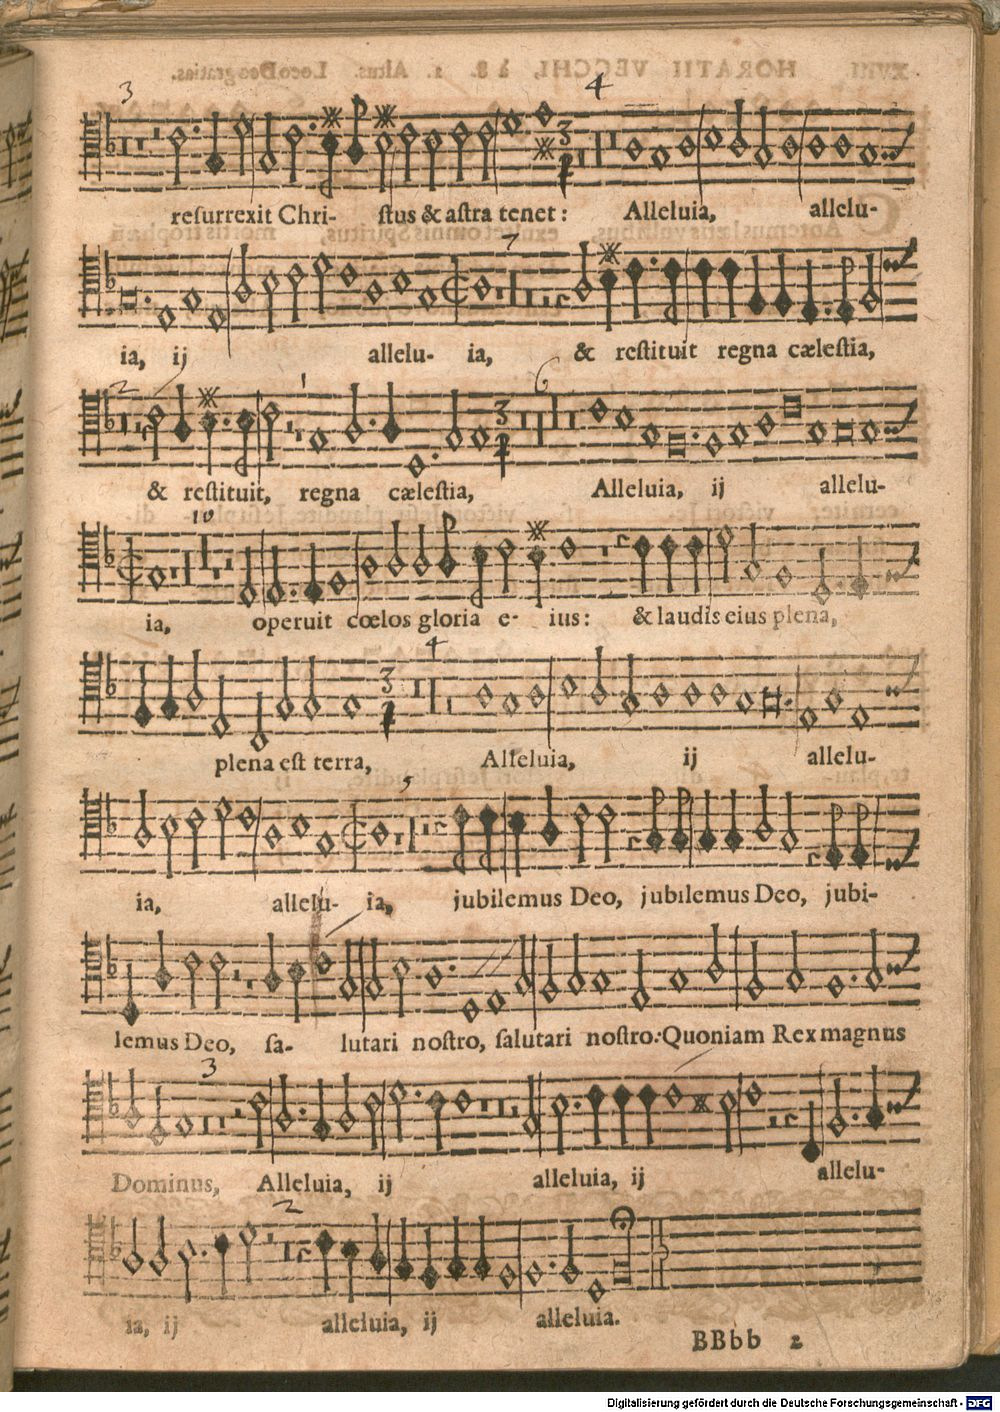 3 4
resurrexit Chri- stus & astra tenet: Alleluia, allelu-
7
ia, ij allelu- ia, & restituit regna cælestia,
2 1 6
& restituit, regna cælestia, Alleluia, ij allelu-
10
ia, operuit cœlos gloria e- ius: & laudis eius plena,
4
plena est terra, Alleluia, ij allelu-
5
ia, allelu- ia, jubilemus Deo, jubilemus Deo, jubi-
lemus Deo, sa- lutari nostro, salutari nostro: Quoniam Rex magnus
3
Dominus, Alleluia, ij alleluia, ij allelu-
2
ia, ij alleluia, ij alleluia.
BBbb 2
Digitalisierung gefördert durch die Deutsche Forschungsgemeinschaft - DFG